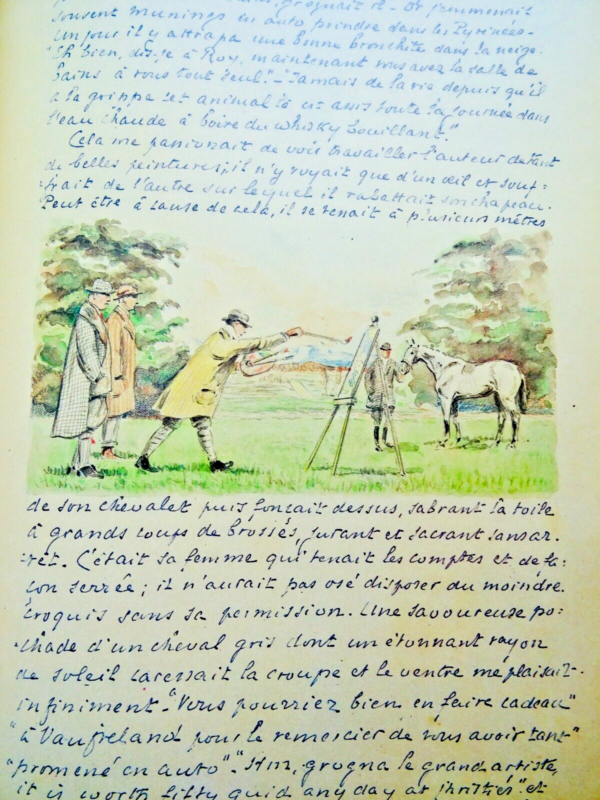 grognait-il. Or j'emmenait
souvent Munings en auto peindre dans les Pyrénées-
Un jour il y attrapa une bonne bronchite dans la neige.
"Eh bien, dis-je à Roy, maintenant vous avez la salle de
bains à vous tout seul"-"Jamais de la vie depuis qu'il
a la grippe cet animal là est assis toute la journée dans
l'eau chaude à boire du whisky bouillant."
Cela me passionnait de voir travailler l'auteur de tant
de belles peintures; il n'y voyait que d'un œil et souf=
frait de l'autre sur lequel il rabattait son chapeau.
Peut être à cause de cela, il se tenait à plusieurs mètres
de son chevalet puis fonçait dessus, sabrant la toile
à grands coups de brosses, jurant et sacrant sans ar.
rêt. C'était sa femme qui tenait les comptes et de fa=
çon serrée; il n'aurait pas osé disposer du moindre
croquis sans sa permission. Une savoureuse po=
chade d'un cheval gris dont un étonnant rayon
de soleil caressait la croupe et le ventre me plaisait
infiniment-"Vous pourriez bien en faire cadeau"
"à Vaufreland pour le remercier de vous avoir tant"
"promené en auto"-"Hm, grogna le grand artiste,
it is worth fifty quid any day at" et